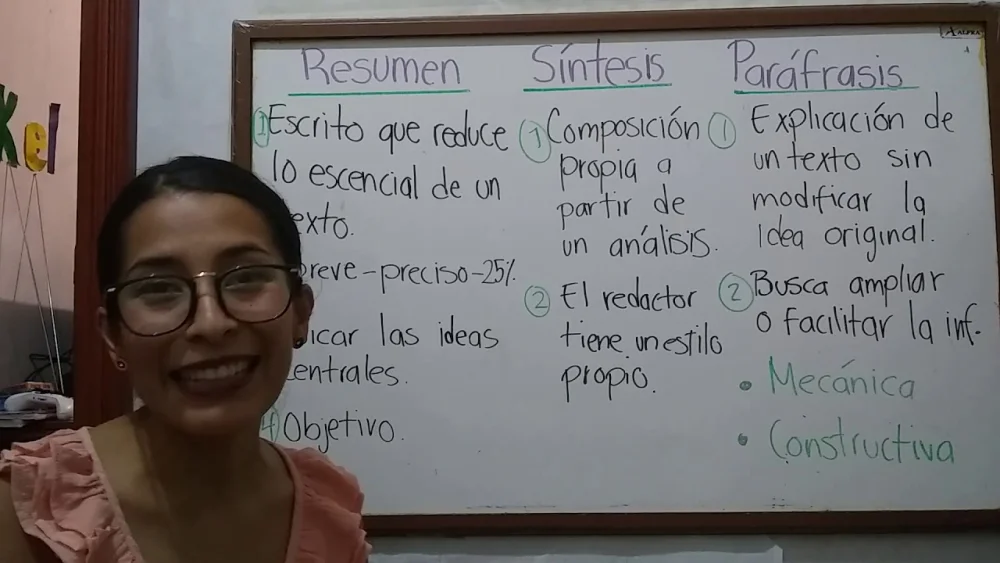 Resumen
① Escrito que reduce
lo escencial de un
exto.
breve-preciso-25%.
icar las ideas
entrales.
④ Objetivo.
Síntesis
① Composición
propia a
partir de
un análisis.
② El redactor
tiene un estilo
propio.
Paráfrasis
① Explicación de
un texto sin
modificar la
idea original.
② Busca ampliar
o facilitar la inf.
• Mecánica
• Constructiva
xel